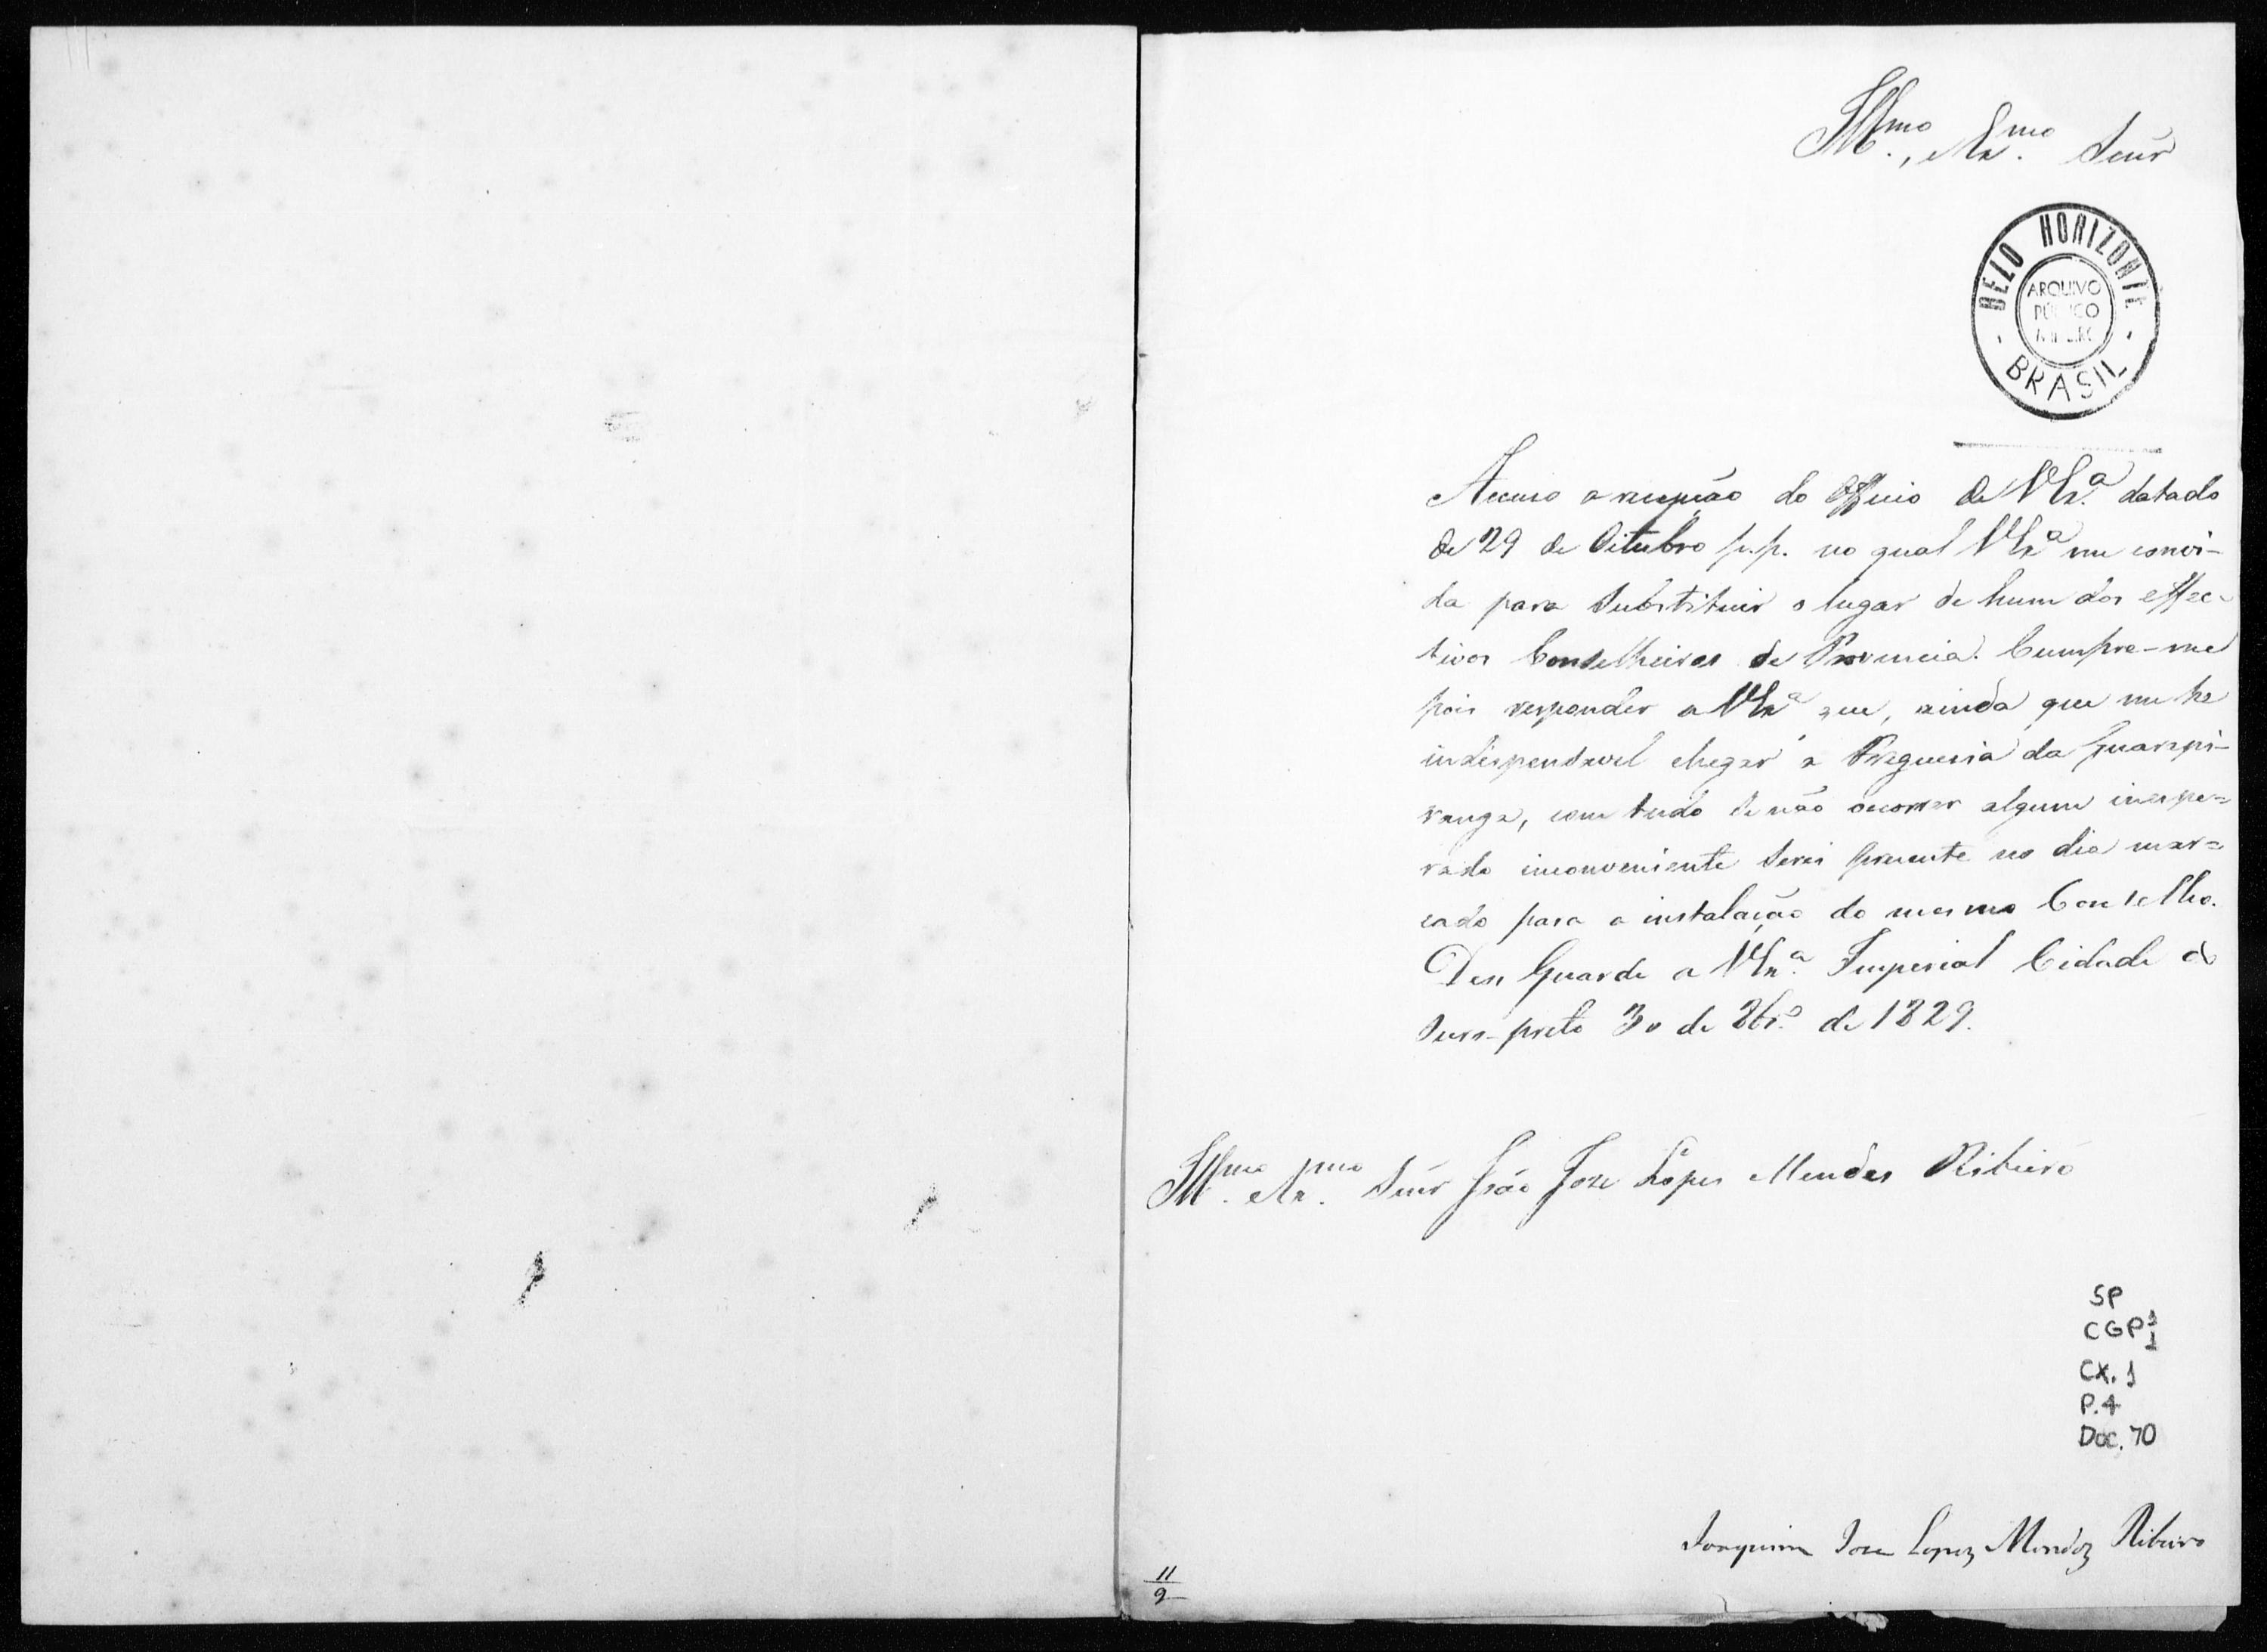 Illmo., Exmo. Senr
BELO HORIZONTE
ARQUIVO
PÚBLICO
MINEIRO
BRASIL
Accuso a recepção do Officio de VExª. datado
de 29 de Oitubro p.p. no qual VExª me convi-
da para substituir o lugar de hum dos effec-
tivos Conselheiros de Provincia. Cumpre-me
pois responder a VExª que, ainda que me he
indispensavel chegar á Freguesia da Guarapi-
ranga, com tudo se não occorrer algum inespe=
rado inconveniente serei presente no dia mar=
cado para a instalação do mesmo Conselho.
Deus Guarde a VExª. Imperial Cidade do
Ouro-preto 30 de 8bro. de 1829.
Illmo. Exmo. Senr João Joze Lopes Mendes Ribeiro
SP
CGP1
CX. 1
P. 4
Doc. 70
Joaquim Joze Lopes Mendes Ribeiro
11
9